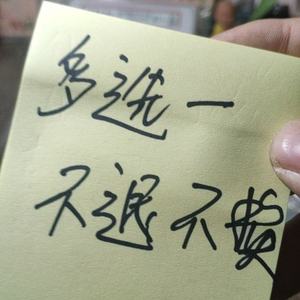 多选一
不退不费